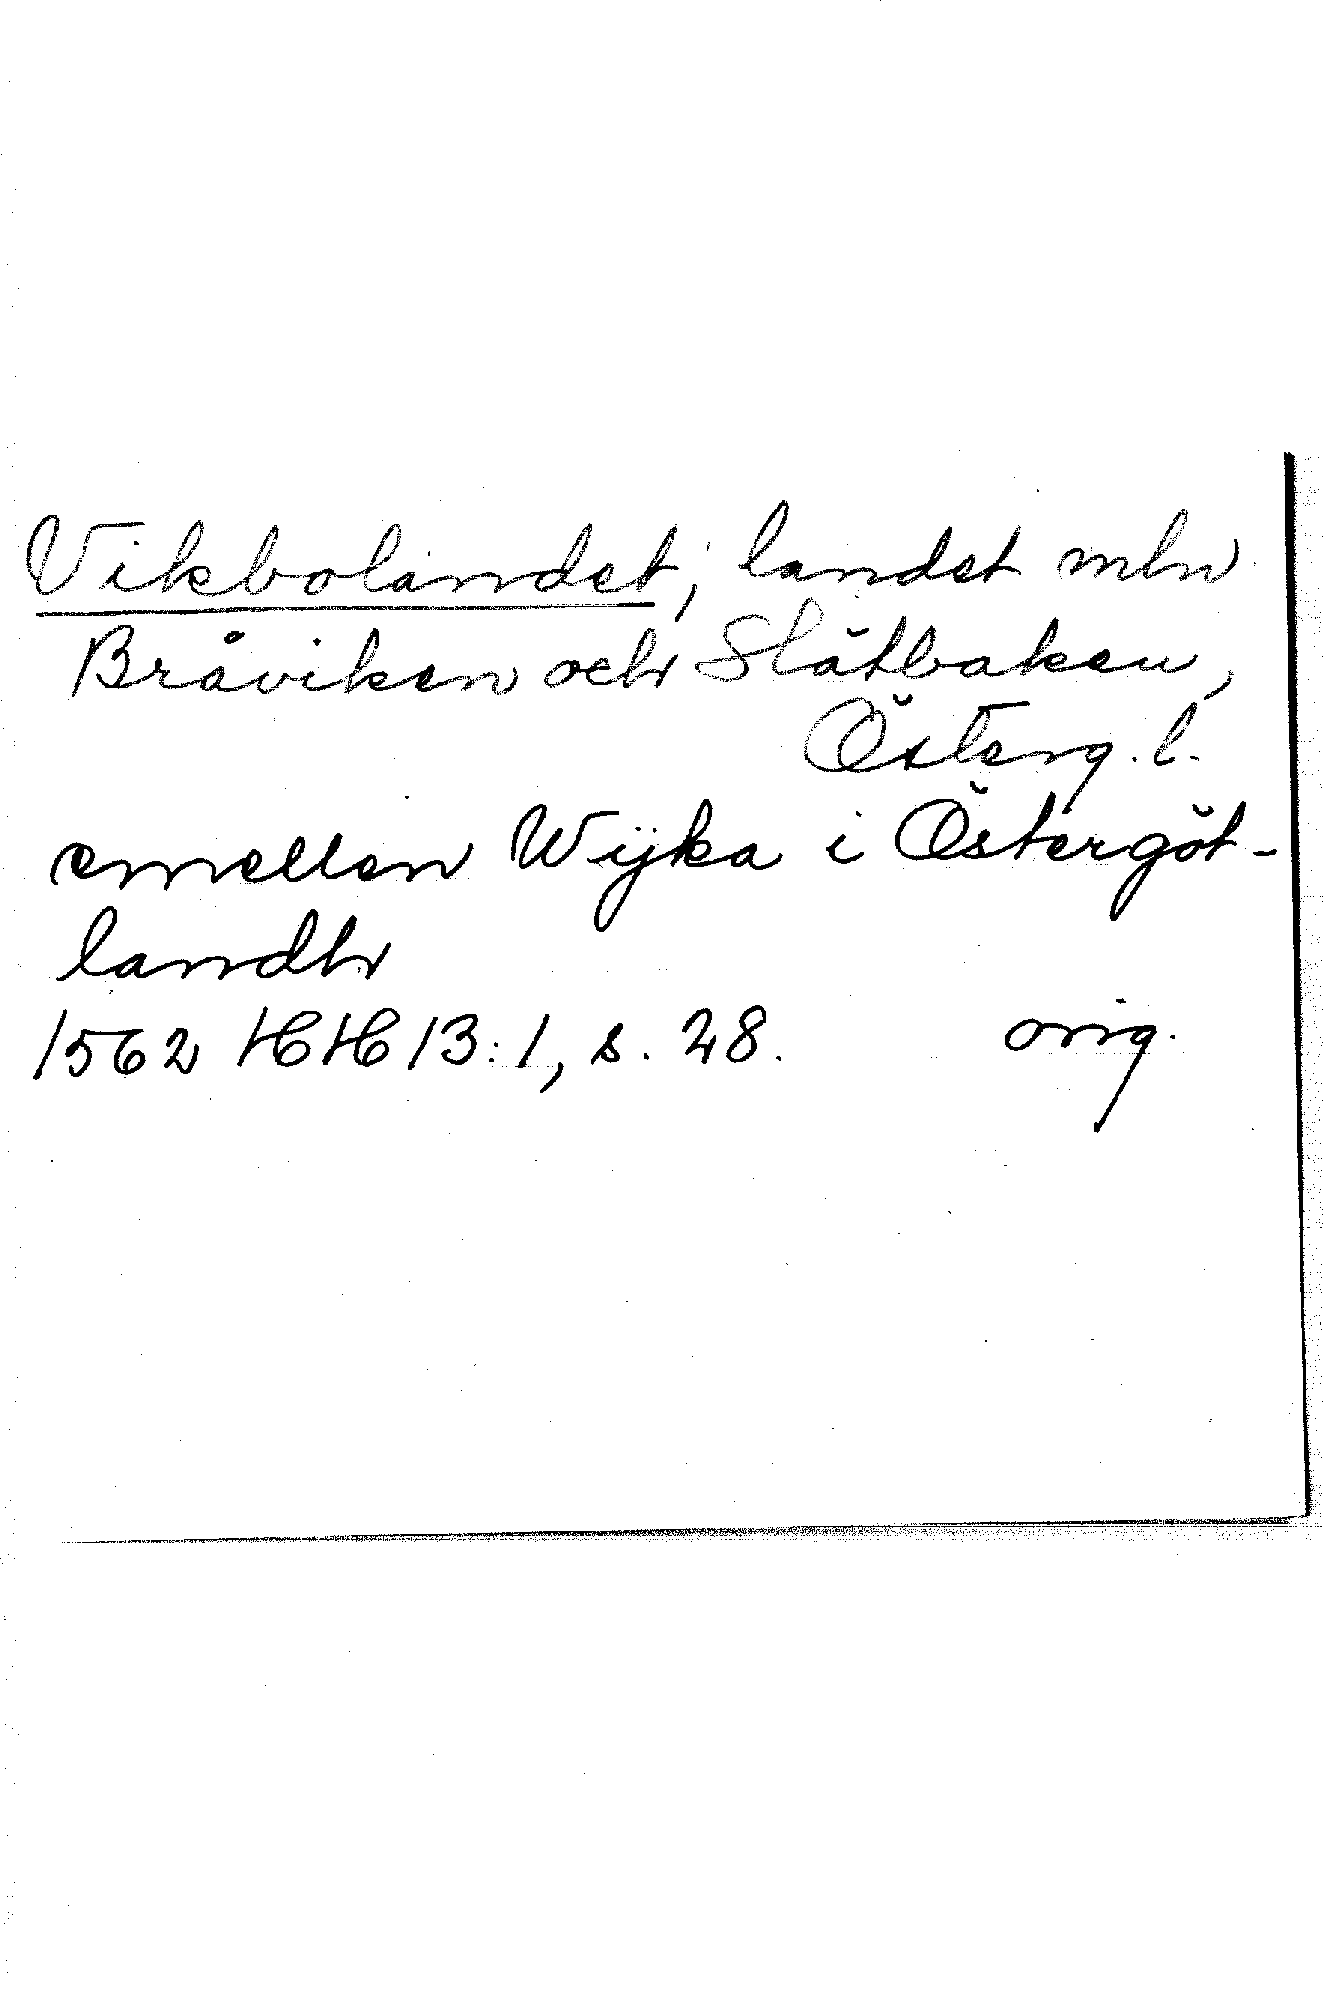 Vikbolandet, landet mln
Bråviken och Slätbaken,
Österg. l.
emellen Wijka i Östergöt-
landh
1562 HH 13:1, s. 28. orig.